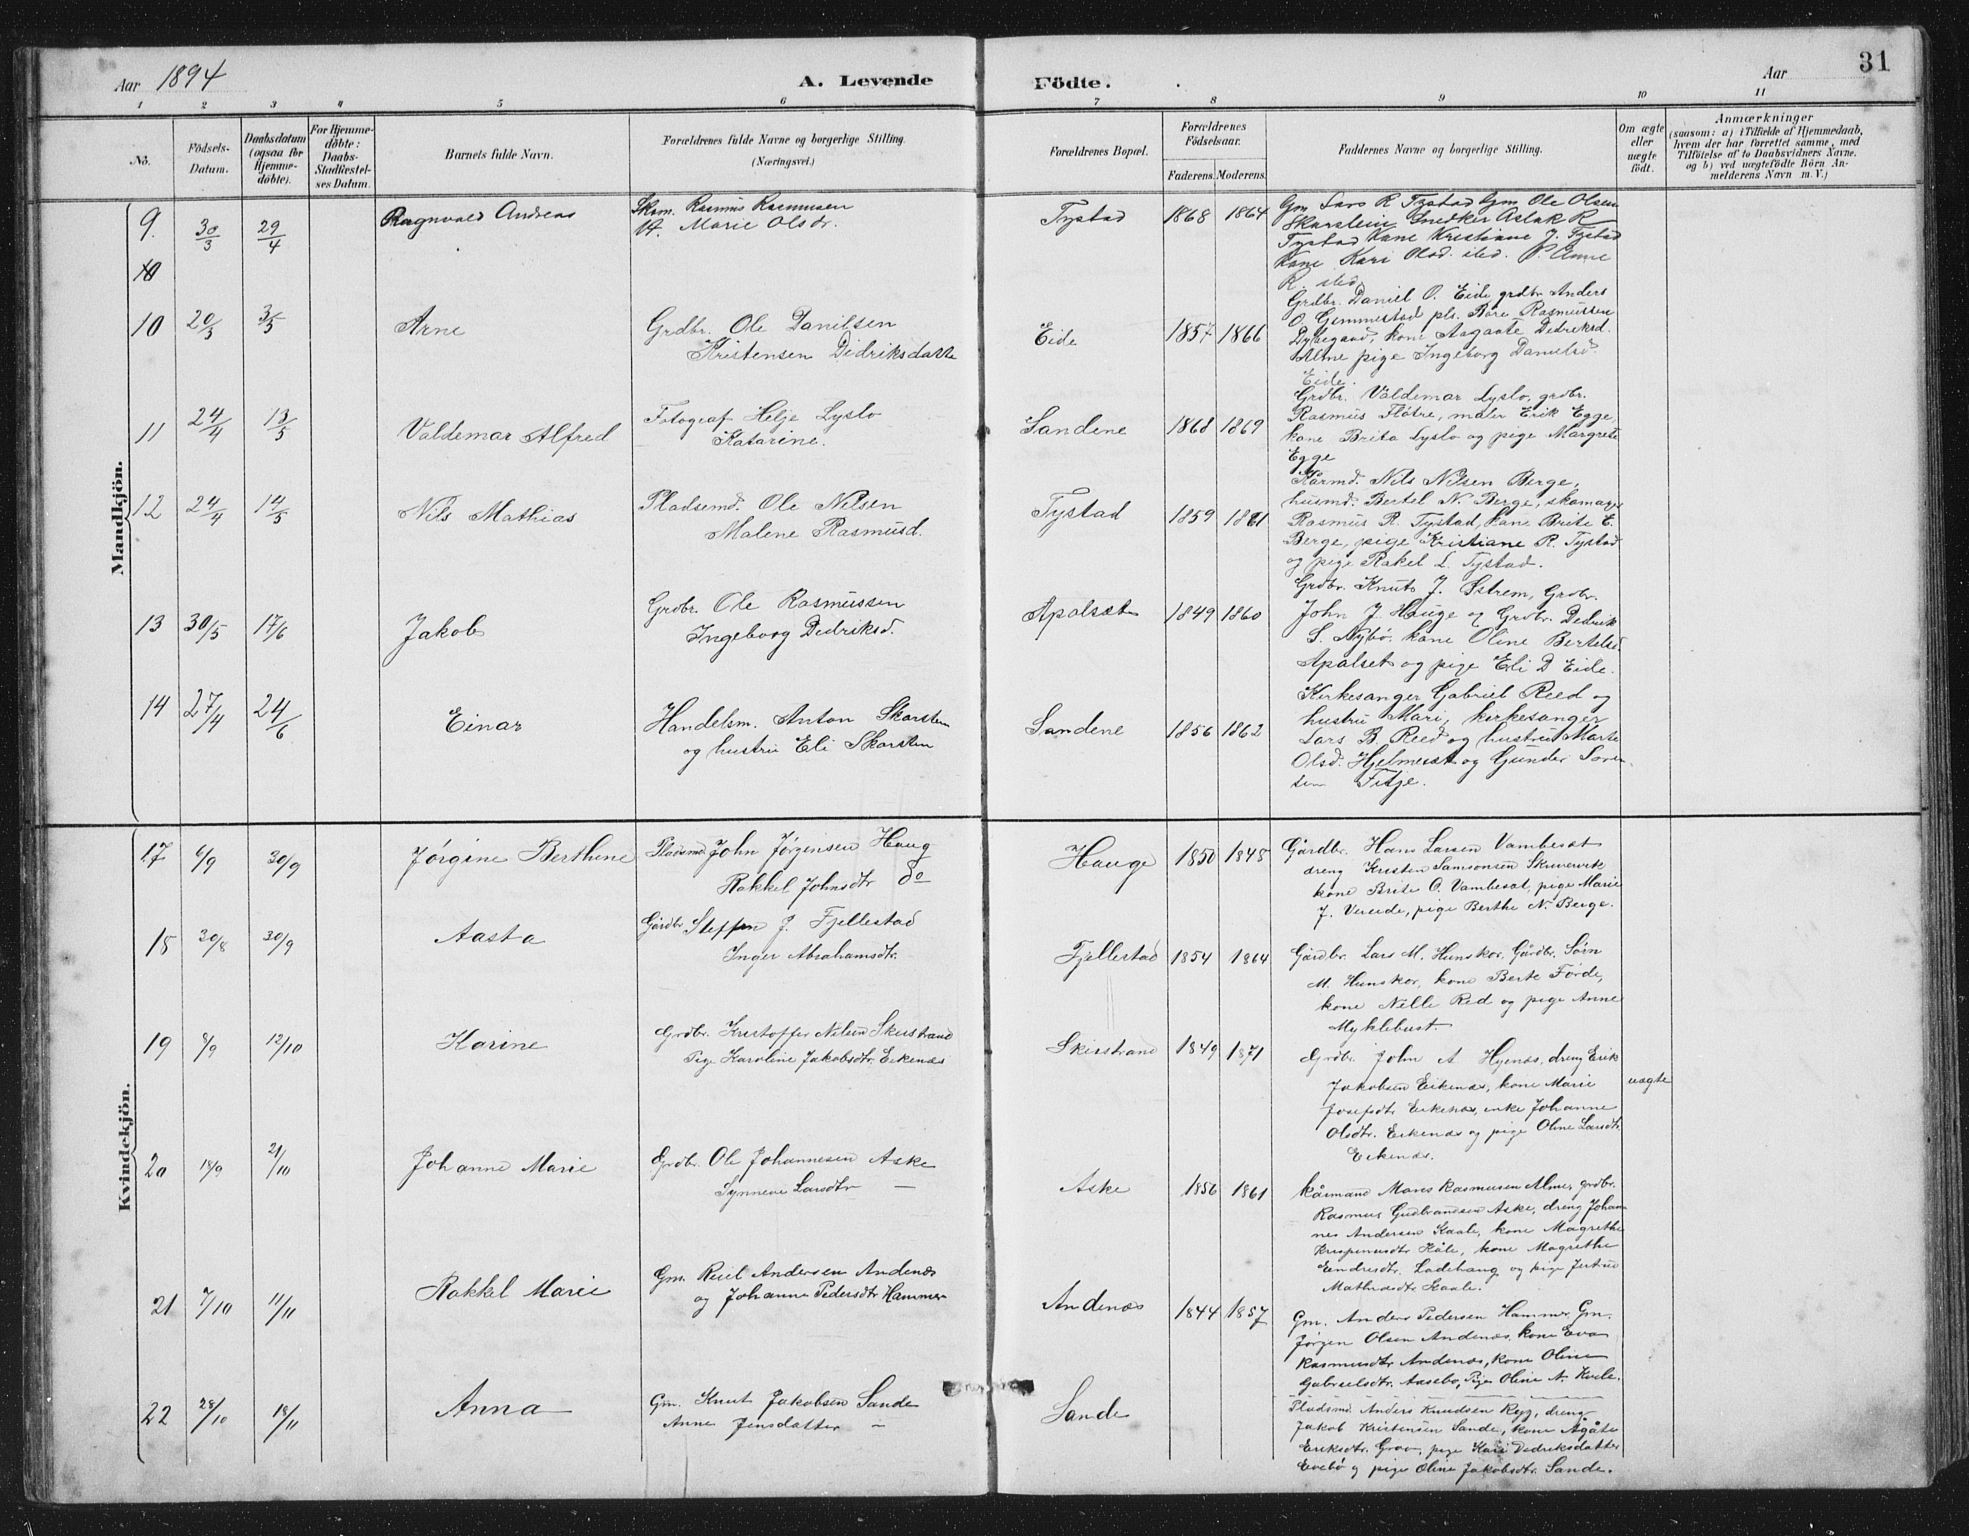 Aar 1894 A. Levende Födte. Aar 31
1 2 3 4 5 6 7 8 9 10 11
No. Födsels-Datum. Daabsdatum (ogsaa for Hjemme-döbte). For Hjemme-döbte: Daabs-Stadfæstel-ses Datum. Barnets fulde Navn. Forældrenes fulde Navne og borgerlige Stilling. (Næringsvei.) Forældrenes Bopæl. Forældrenes Födselsaar. Faderens. Moderens. Faddernes Navne og borgerlige Stilling. Om ægte eller uægte födt. Anmærkninger (saasom: a) i Tilfælde af Hjemmedaab, hvem der har forrettet samme, med Tilföielse af to Daabsvidners Navne. og b) ved uægtefödte Börn An-melderens Navn m. V.)
Mandkjön.
9. 30/3 29/4 Ragnvald Andreas Skom. Rasmus Rasmussen
H. Marie Olsdr. Tystad 1868 1864 Gm Lars R Tystad Gm Ole Olsen
Skarstein Snedker Aslak R
Tystad Kone Kristiane J. Tystad
Kone Kari Olsd. sted. P. Anne
R. sted
10
10 20/3 3/5 Arne Grdbr. Ole Danilsen
Kristensen Didriksdatte Eide 1857 1866 Grdbr. Daniel O. Eide grdbr Anders
O. Gemmestad pls. Bore Rasmussen
Dybegaad, kone Aagaate Dedriksd.
Alme pige Ingeborg Danielsd.
Eide.
11 24/4 13/5 Valdemar Alfred Fotograf Helje Lyslo
Katarine. Sandene 1868 1869 Grdbr. Valdemar Lyslo, grdbr.
Rasmus Flötre, maler Erik Egge
kone Brita Lyslo og pige Margrete
Egge
12 24/4 14/5 Nils Mathias Pladsemd. Ole Nilsen
Malene Rasmusd. Tystad 1859 1861 Kårmd. Nils Nilsen Berge,
husmd. Bertel N. Berge, skomager
Rasmus R. Tystad, kone Brite E.
Berge, pige Kristiane R. Tystad
og pige Rakel L. Tystad.
13 30/5 17/6 Jakob Grdbr. Ole Rasmussen
Ingeborg Dedriksd. Apalsæt 1849 1860 Grdbr. Knut J. Østrem, Grdbr.
John J. Hauge og Grdbr. Dedrik
S. Nybö. kone Oline Bertelsd.
Apalset og pige Eli D Eide.
14 27/4 24/6 Einar Handelsm. Anton Skarsten
og hustru Eli Skarsten Sandene 1856 1862 Kirkesanger Gabriel Reed og
hustru Mari, kirkesanger
Lars B Reed og hustru Marte
Olsd. Hjelmesæt og Gunder Soren
sen Fitje.
Kvindekjön.
17 6/9 30/9 Jørgine Berthine Pladsmd John Jørgensen Haug
Rakkel Johnsdtr do Hauge 1850 1848 Gårdbr. Hans Larsen Vambesæt
dreng Kristen Samsonsen Skinnvik
kone Brite O. Vambesæt, pige Marie
J. Vereide, pige Berthe N. Berge.
18 30/8 30/9 Aasta Gårdbr Steffen J. Fjellestad
Inger Abrahamsdtr. Fjellestad 1854 1864 Gårdbr. Lars M. Hunskor, Gårdbr. Sørn
M. Hunskor, kone Berte Förde,
kone Nelle Red og pige Anne
Myklebust.
19 8/9 12/10 Karine Grdbr. Kristoffer Nilsen Skeistrand
Pige Karoline Jakobsdtr. Eikenæs Skeistrand 1849 1871 Grdbr. John A Hyenæs, dreng Erik
Jakobsen Eikenæs, kone Marie
Josefsdtr Eikenæs, enke Johanne
Olsdtr. Eikenæs og pige Oline Larsdtr.
Eikenæs. uægte
20 18/9 21/10 Johanne Marie Grdbr. Ole Johannesen Aske
Synneve Larsdtr — Aske 1856 1861 Kårmand Mons Rasmusen Alme, grdbr.
Rasmus Gudbrandsen Aske, dreng Johan
nes Andersen Kaale, kone Magrethe
Krispinusdtr Kåle, kone Magrethe
Eindresdtr. Ladehaug og pige Jertine
Mathiasdtr Kaale.
21 7/10 11/11 Rakkel Marie Gm. Reiel Andersen Andenæs
og Johanne Pedersdtr Hammer Andenæs 1844 1857 Gm. Anders Pedersen Hammer, Gm.
Jørgen Olsen Andenæs, kone Eva
Rasmusdtr Andenæs, kone Oline
Gabrielsdtr. Aasebø, Pige Oline A. Kvile.
22 28/10 18/11 Anna Gm. Knut Jakobsen Sande
Anne Jensdatter — Sande Pladsmd. Anders Knudsen Ryg, dreng
Jakob Kristensen Sande, kone Ågåte
Eriksdtr. Grov, pige Kari Dedriksdatter
Evebø og pige Oline Jakobsdtr. Sande.